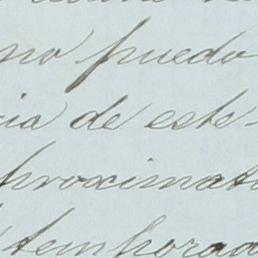 no puedo
cia de este
proximat
temporad